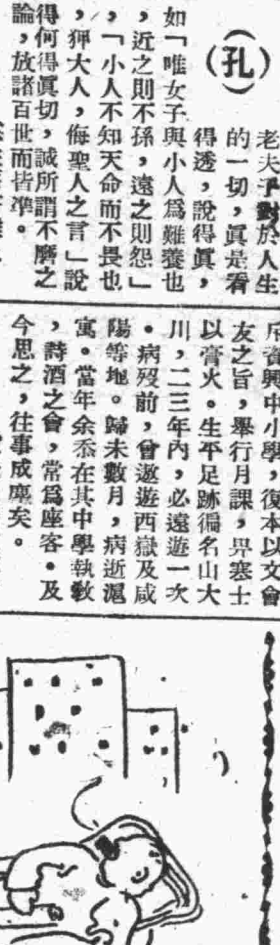 (孔)
老夫子對於人生
的一切，眞是看
得透，說得眞，
如「唯女子與小人爲難養也
，近之則不孫，遠之則怨」
，「小人不知天命而不畏也
，狎大人，侮聖人之言」說
得何得眞切，誠所謂不磨之
論，放諸百世而皆準。
斥資興中小學，復本以文會
友之旨，舉行月課，畀寒士
以膏火。生平足跡徧名山大
川，二三年內，必遠遊一次
。病歿前，曾遨遊西嶽及咸
陽等地。歸未數月，病逝滬
寓。當年余忝在其中學執敎
，詩酒之會，常爲座客。及
今思之，往事成塵矣。